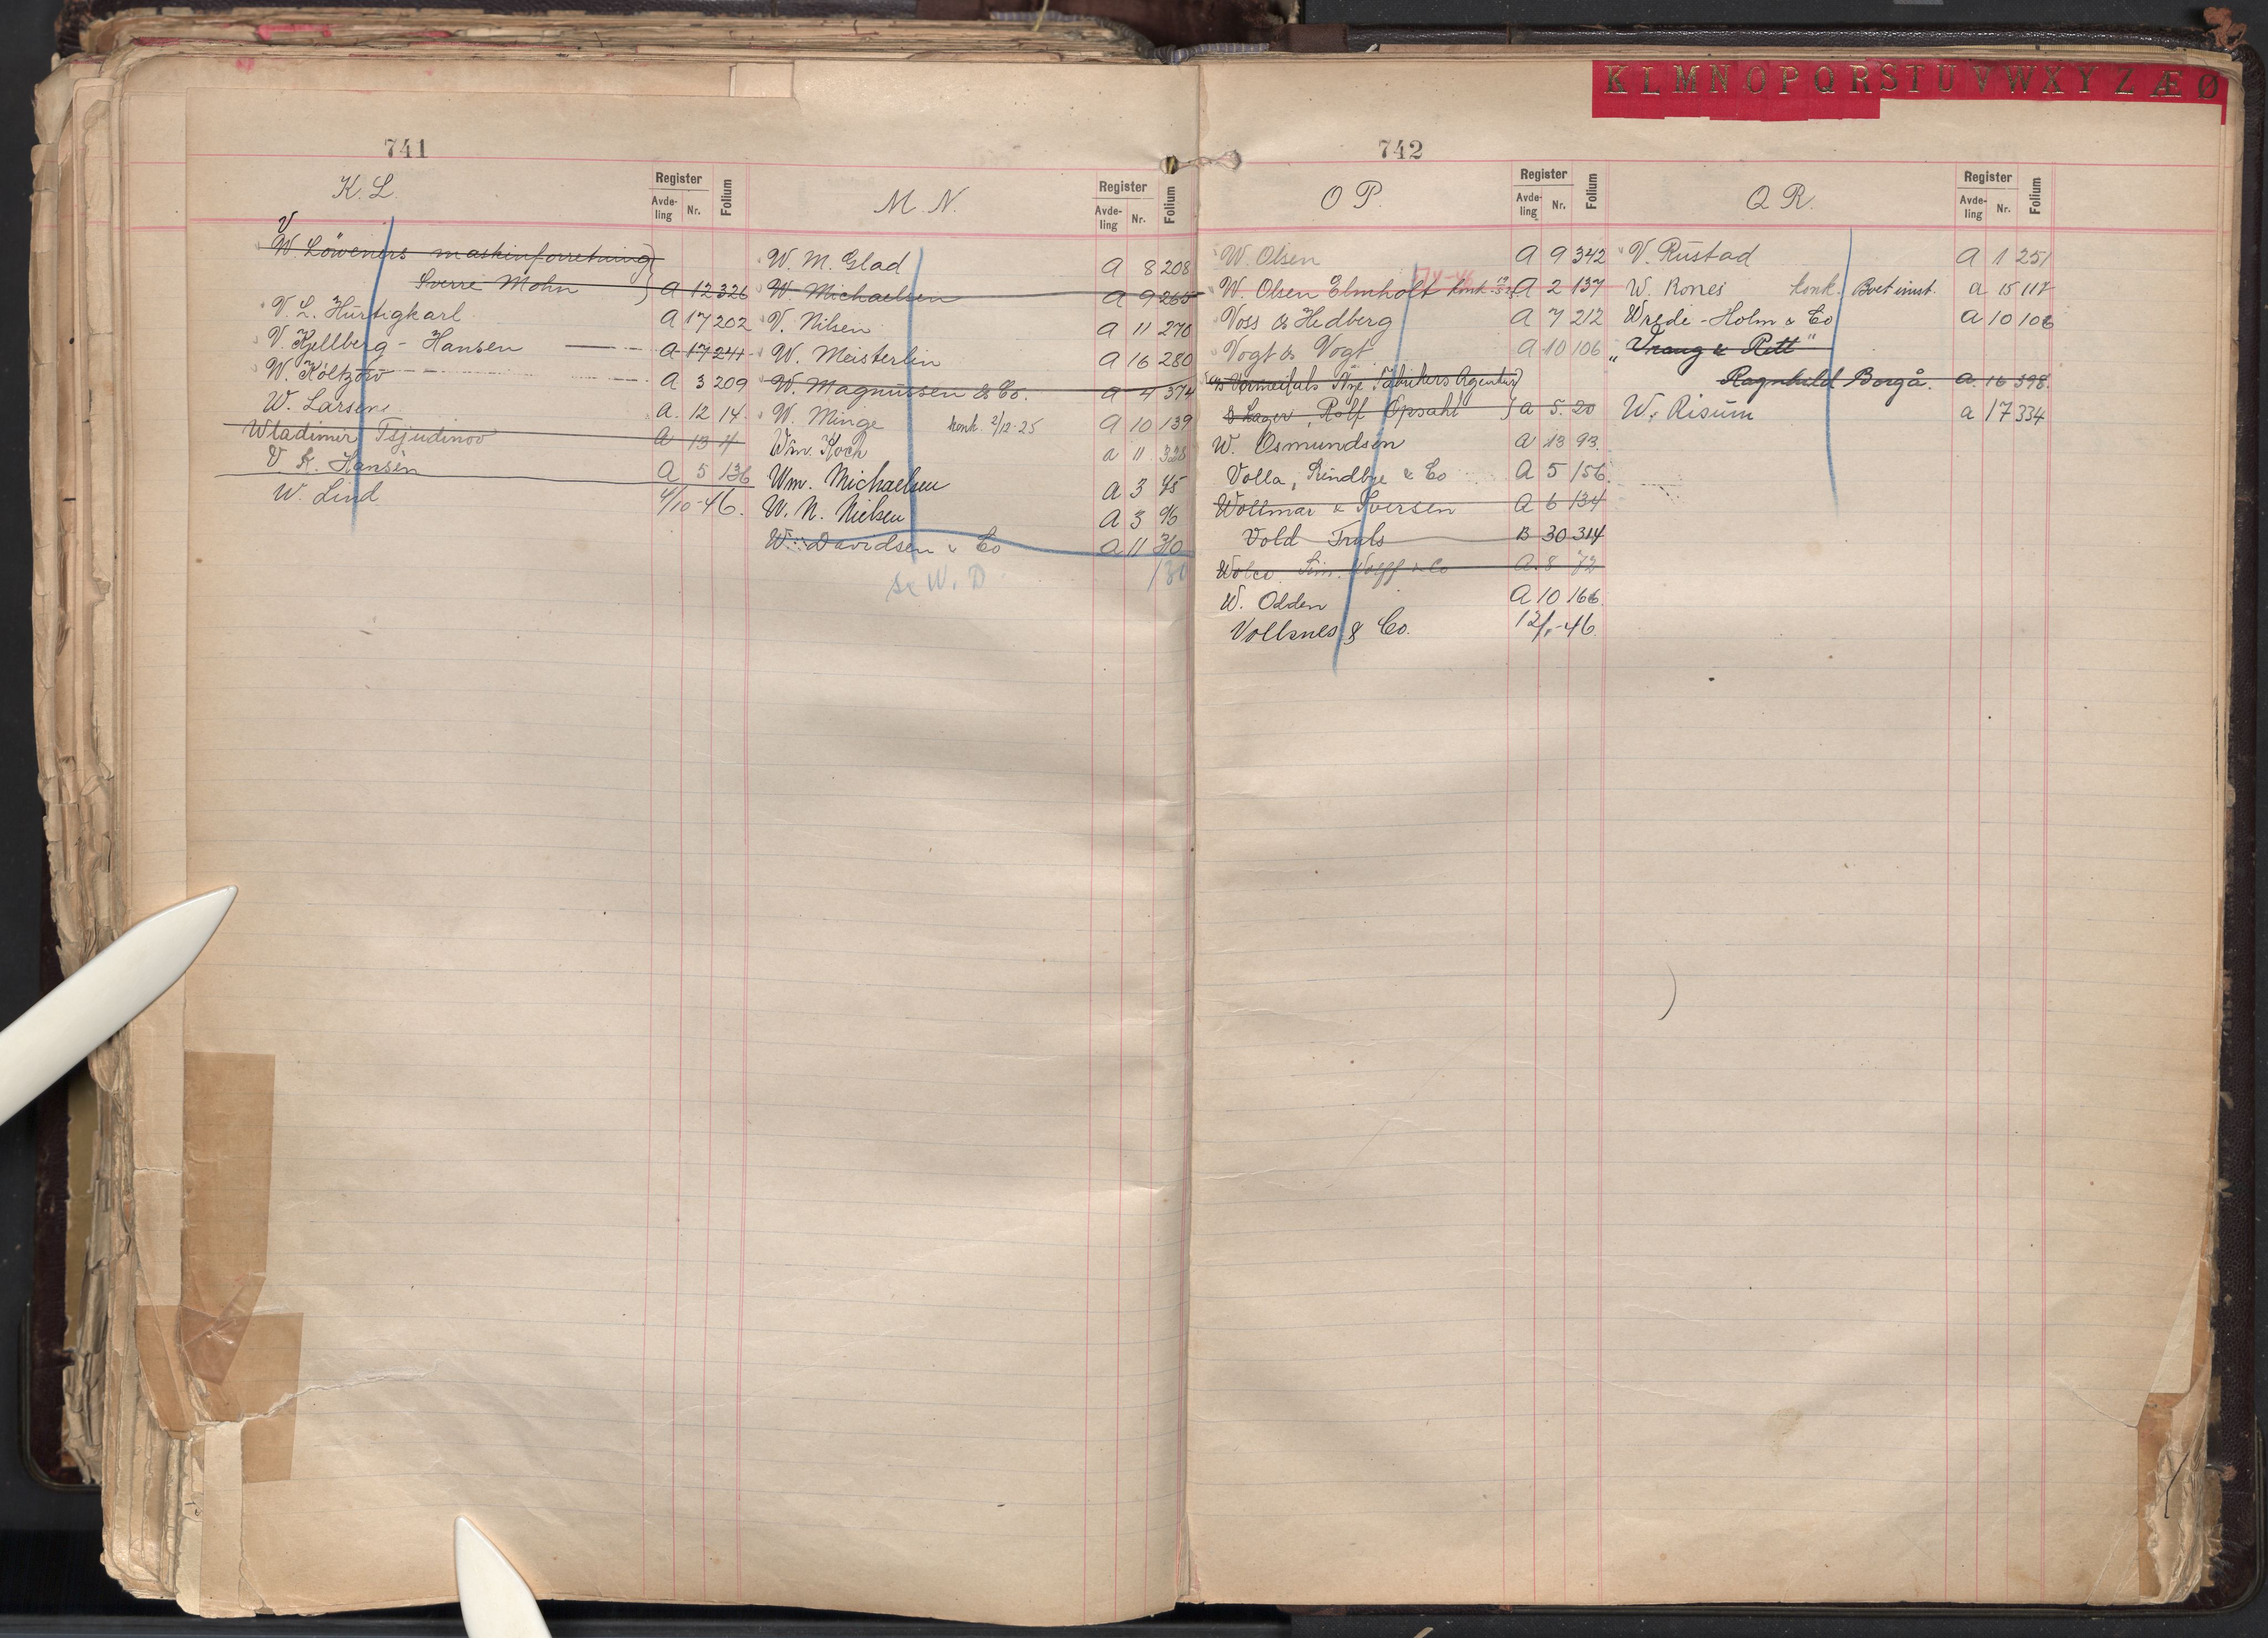 K L M N O P Q R S T U V W X Y Z Æ Ø
741
K. L.
Register
Avde-ling Nr. Folium
V
W. Löweners maskinforretning
Sverre Mohn A 12 326
V. L. Hürtigkarl A 17 202
V. Kjellberg - Hansen A 17 241
W. Koltzow A 3 209
W. Larsen A. 12 14
Wladimir Tsjudinov A 13 4
V. K. Hansen A 5 136
W. Lind 4/10-46.
M. N.
Register
Avde-ling Nr. Folium
W. M. Glad A 8 208
W. Michaelsen A 9 265
V. Nilsen A 11 270
W. Meisterlin A 16 280
W. Magnussen & Co. A 4 374
W. Minge konk. 2/12-25 A 10 139
Wm. Koch A 11 328
Wm. Michaelsen A 3 45
W. N. Nielsen A 3 96
W. Davidsen & Co A 11 310
se W. D 130
742
O P.
Register
Avde-ling Nr. Folium
W. Olsen A 9 342
W. Olsen Elmholt konk. A 2 137
Voss & Hedberg A 7 212
Vogt & Vogt A 10 106
Fabrikers Agentur
& Lager, Rolf Opsahl A 5. 20
W. Osmundsen A 13 93.
Volla, Lindbye & Co A 5 156.
Wollmar & Iversen A 6 134
Vold Truls B 30 314
Wolco. Sim. Wolff & Co A. 8 72
W. Odden A 10 166.
Vollsnes & Co. 12/1-46.
Q R.
Register
Avde-ling Nr. Folium
V. Rustad A 1 251
W. Rones konk. Boet innst. A 15 117
Wrede-Holm & Co A 10 106
"Vrang & Rett"
Ragnhild Borgå. A. 16 398.
W. Risum A 17 334